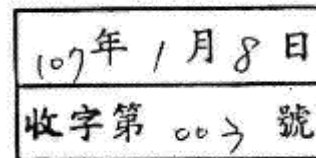 107年1月8日
收字第003號